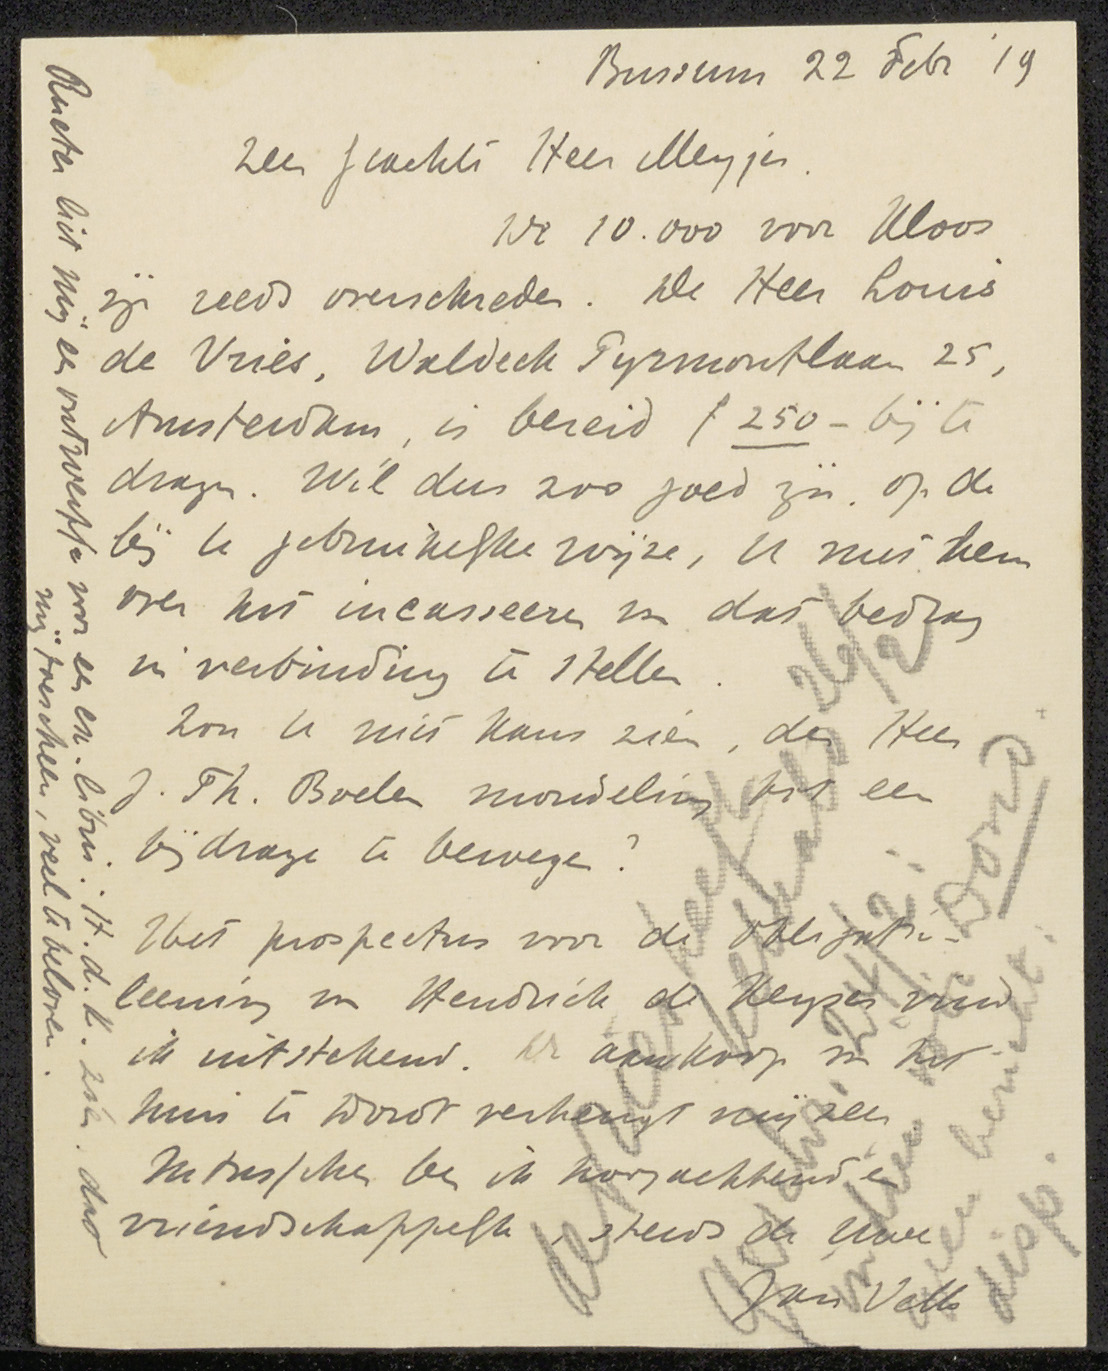 Bussum 22 Febr '19
Zeer geachte Heer Meyjes.
De 10.000 voor Kloos
zijn reeds overschreden. De Heer Louis
de Vries, Waldeck Pyrmontlaan 25,
Amsterdam, is bereid f 250 - bij te
dragen. Wil dus zoo goed zijn, op de
bij U gebruikelijke wijze, U met hem
over het incasseeren van dat bedrag
in verbinding te stellen.
Zou U niet kans zien, den Heer
J. Th. Boelen mondeling tot een
bijdrage te bewegen?
Het prospectus voor de obligatie-
leening van Hendrick de Keyser vind
ik uitstekend. De aankoop van het
huis te Dordt verheugt mij zeer.
Intusschen ben ik hoogachtend en
vriendschappelijk, steeds de Uwe
Jan Veth
Rueter liet mij en ontwerpje voor een ex. libris. H. d. K. zien. dat
mij toescheen, veel te beloven.
24/2.
Dord
over bericht.
disp.
26/2